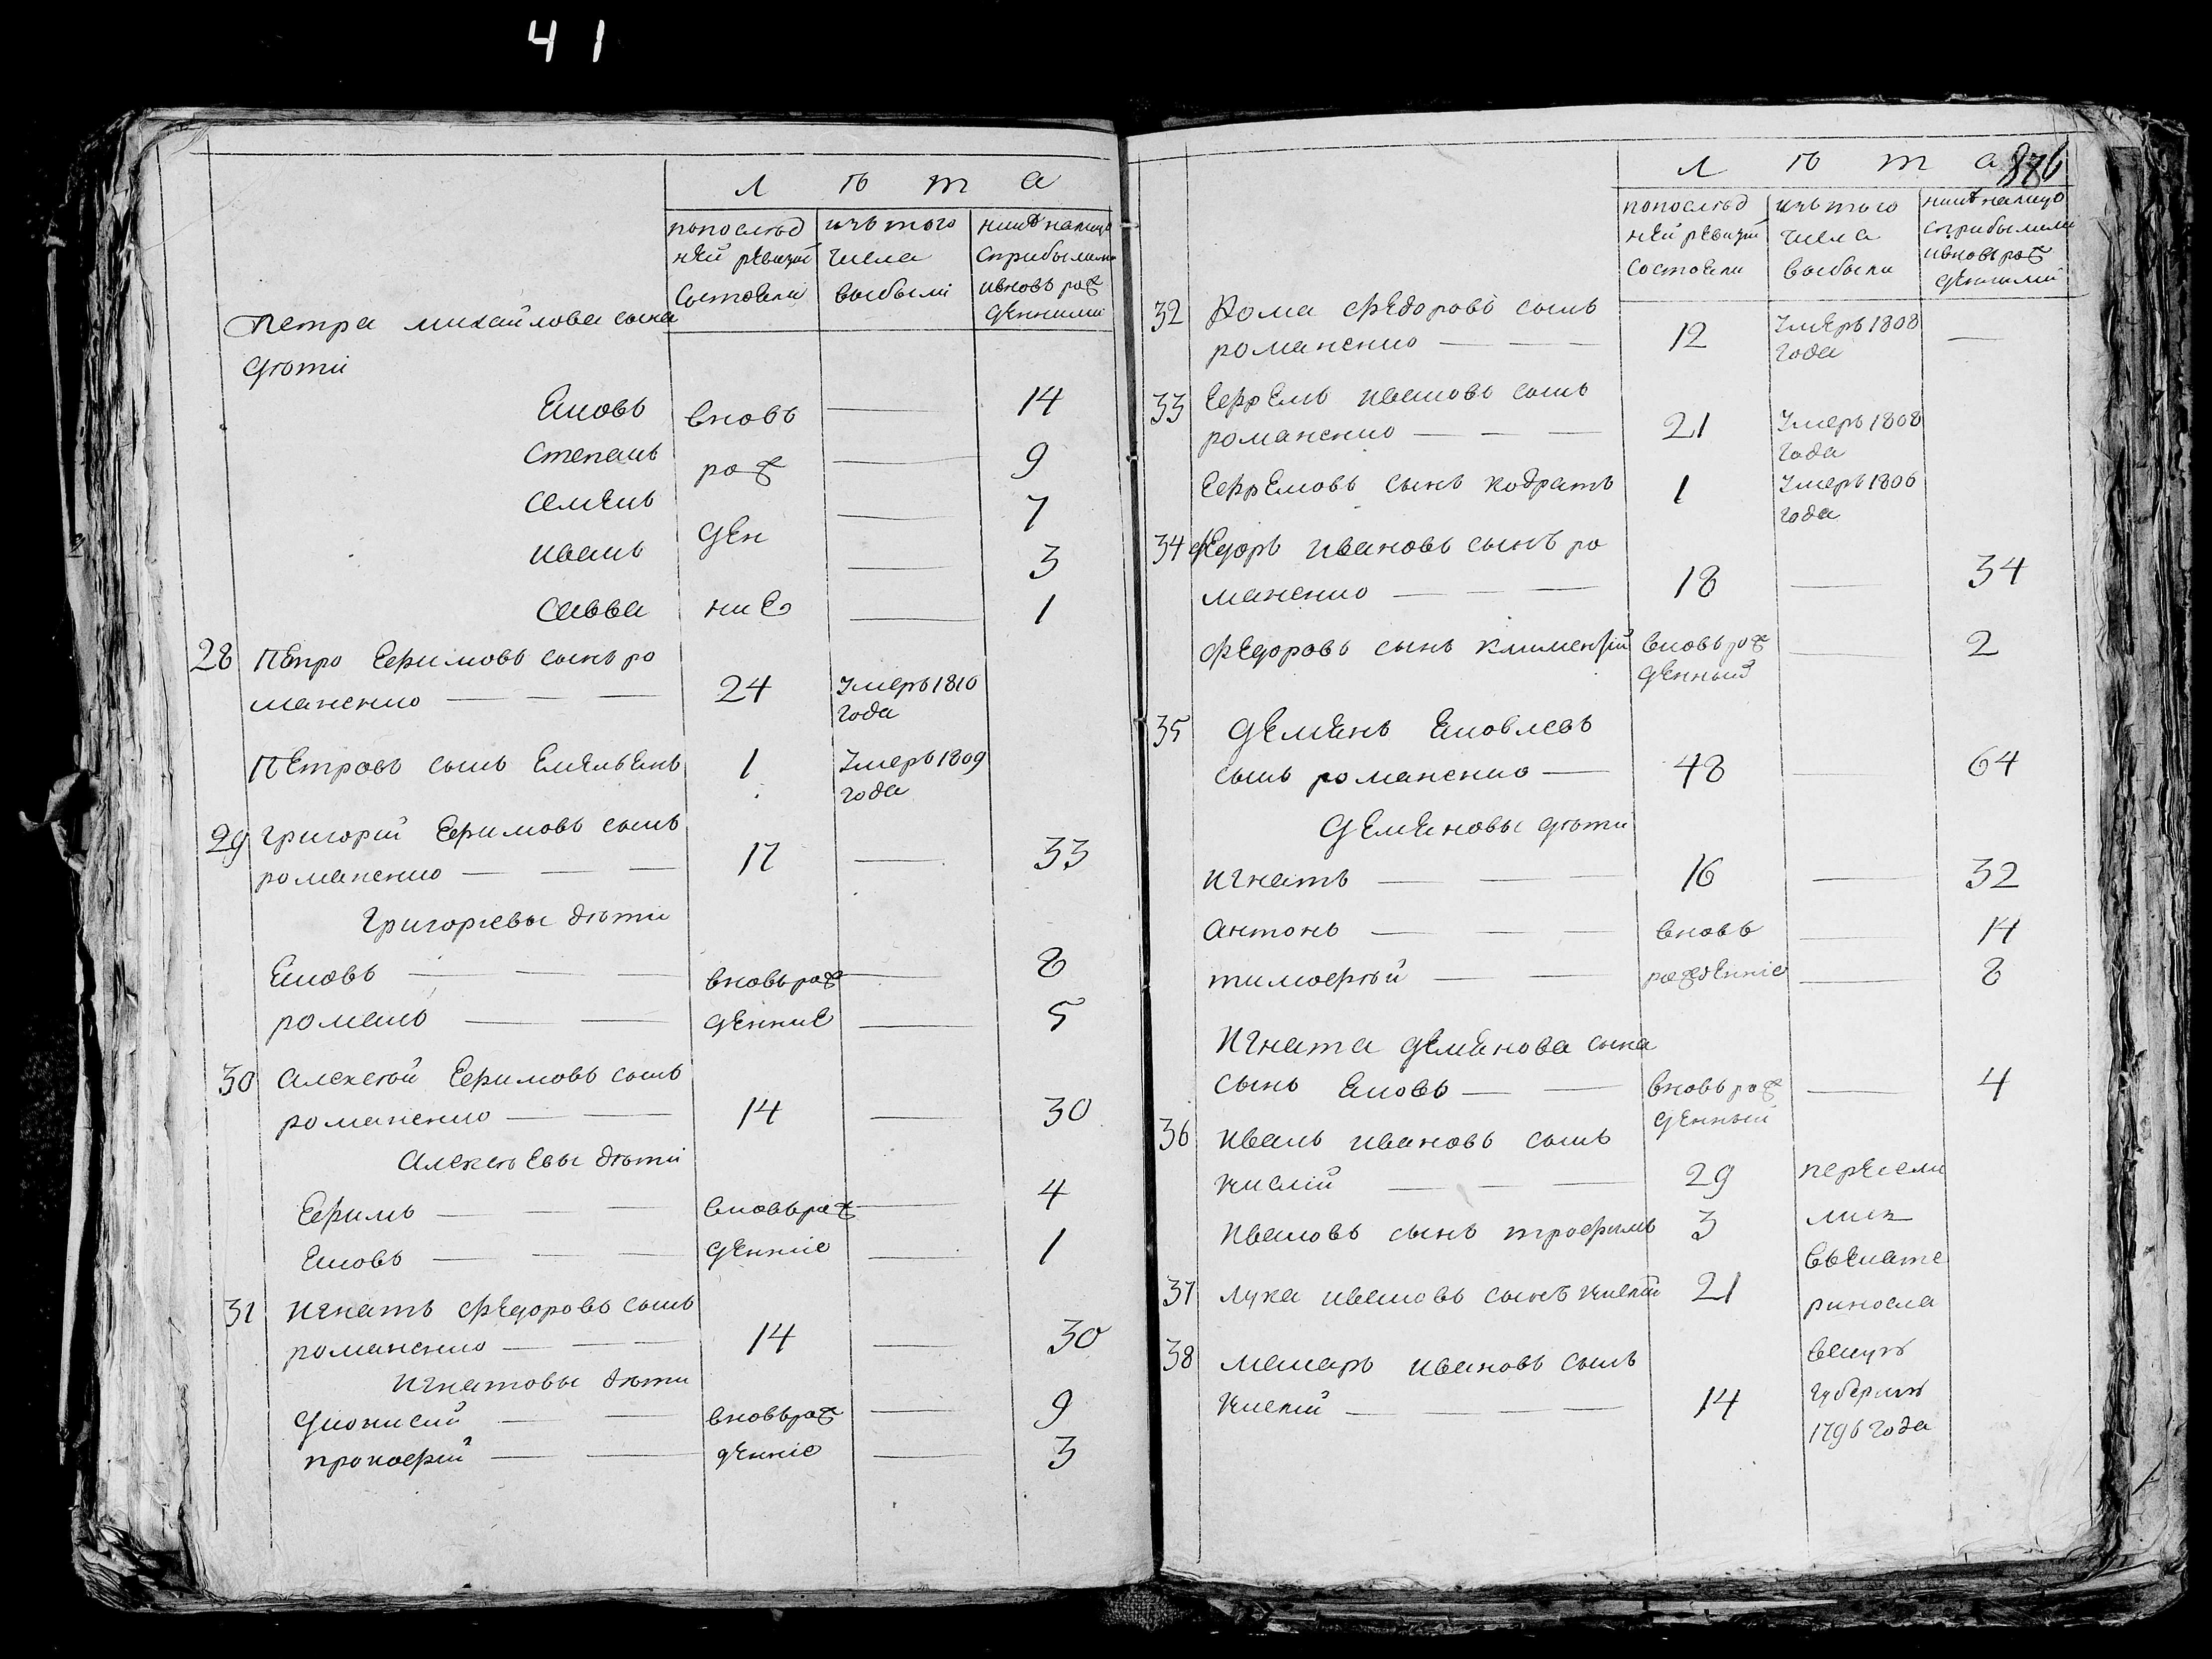 41
Л ѣ т а
попослѣд
ней ревизій
состояли
изъ того
числа
выбыли
нинѣ налицо
сприбылими
ивновь рож
денними
Петра михайлова сина
дѣти
Яковъ вновь — 14
Степанъ рож — 9
Семенъ ден — 7
иванъ — 3
Савва ние — 1
28 Петро Ефимовъ синъ ро
маненко — — — 24 Умеръ 1810
года
Петровъ синъ Емельянъ 1 Умеръ 1809
года
29 Григорій Ефимовъ синъ
романенко — — — 17 — 33
Григоріевы дѣти
Яковъ — — вновьрож — 8
романъ — — денние — 5
30 Алексѣй Ефимовъ синъ
романенко — — 14 — 30
Алексѣевы дѣти
Ефимъ — — — вновьрож — 4
Яковъ — — — денніе — 1
31 Игнатъ Федоровъ синъ
романенко — — 14 — 30
Игнатовы дѣти
Дионисий — — вновьрож — 9
прокофій — — денніе — 3
876
Л ѣ т а
попослѣд
ней ревизій
состояли
изъ того
числа
выбыли
нинѣ налицо
сприбылими
ивновь рож
денними
32 Фома Федоровъ синъ
романенко — — — 12 Умеръ 1808
года —
33 Ефремъ ивановъ синъ
романенко — — — 21 Умеръ 1808
года
Ефремовъ синъ кодратъ 1 Умеръ 1806
года
34 Федоръ ивановъ синъ ро
маненко — — — 18 — 34
Федоровъ синъ климентій вновь рож — 2
денный
35 Демянъ Яковлевъ
синъ романенко — 48 — 64
Демяновы дѣти
Игнатъ — — — 16 — 32
Антонъ — — — вновь — 14
тимофѣй — — рожденніе — 8
Игната демянова сина
синъ Яковъ — — вновь рож — 4
денный
36 Иванъ ивановъ синъ
кислій — — — 29 пересели
Ивановъ синъ трофимъ 3 лись
въекате
37 лука ивановъ синъ кислій 21 риносла
38 макаръ ивановъ синъ вскую
кислій — — — 14 губернію
1796 года